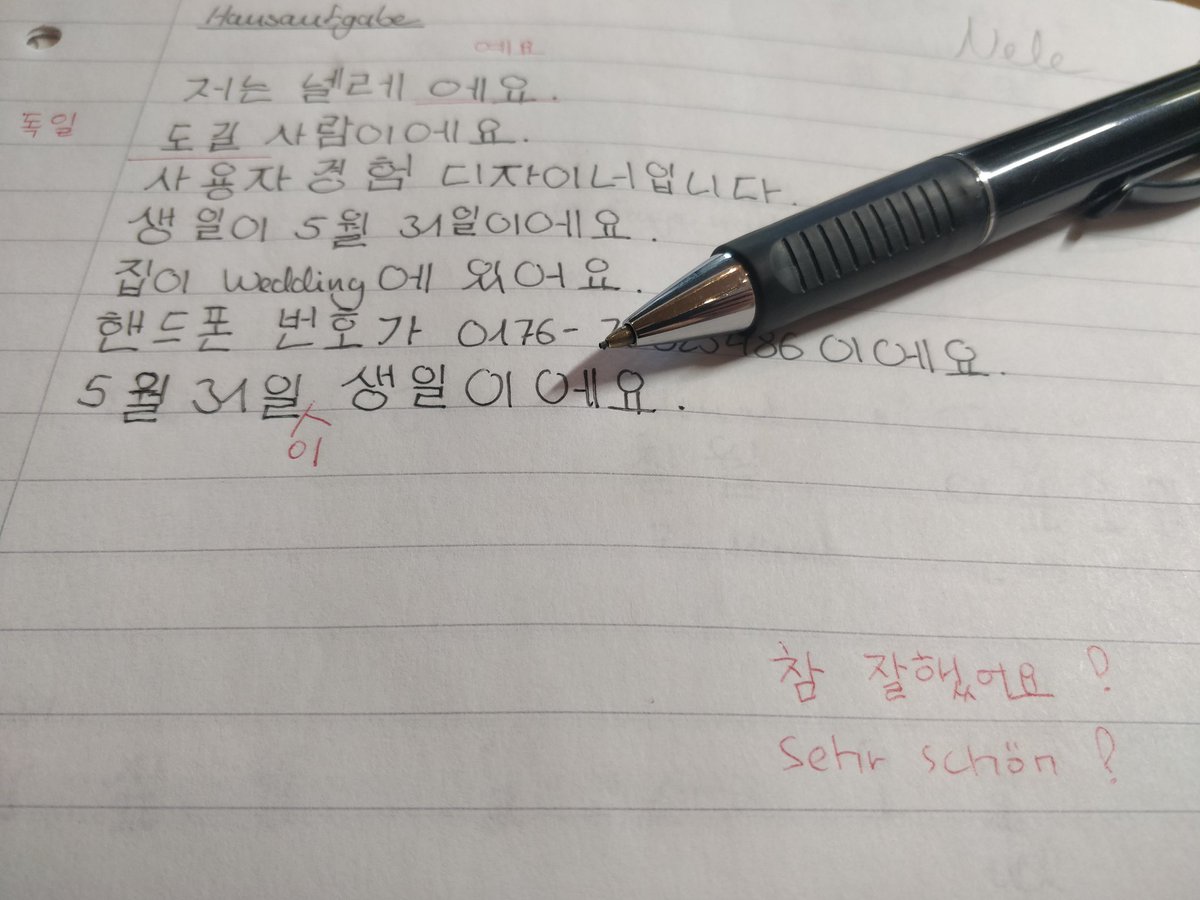 Hausaufgabe
Nele
예요
저는 넬레 에요.
독일
도길 사람이에요.
사용자 경험 디자이너입니다.
생일이 5월 31일이에요.
집이 Wedding에 있어요.
핸드폰 번호가 0176- 이에요.
5월 31일 생일이에요.
이
참 잘했어요!
Sehr schön!